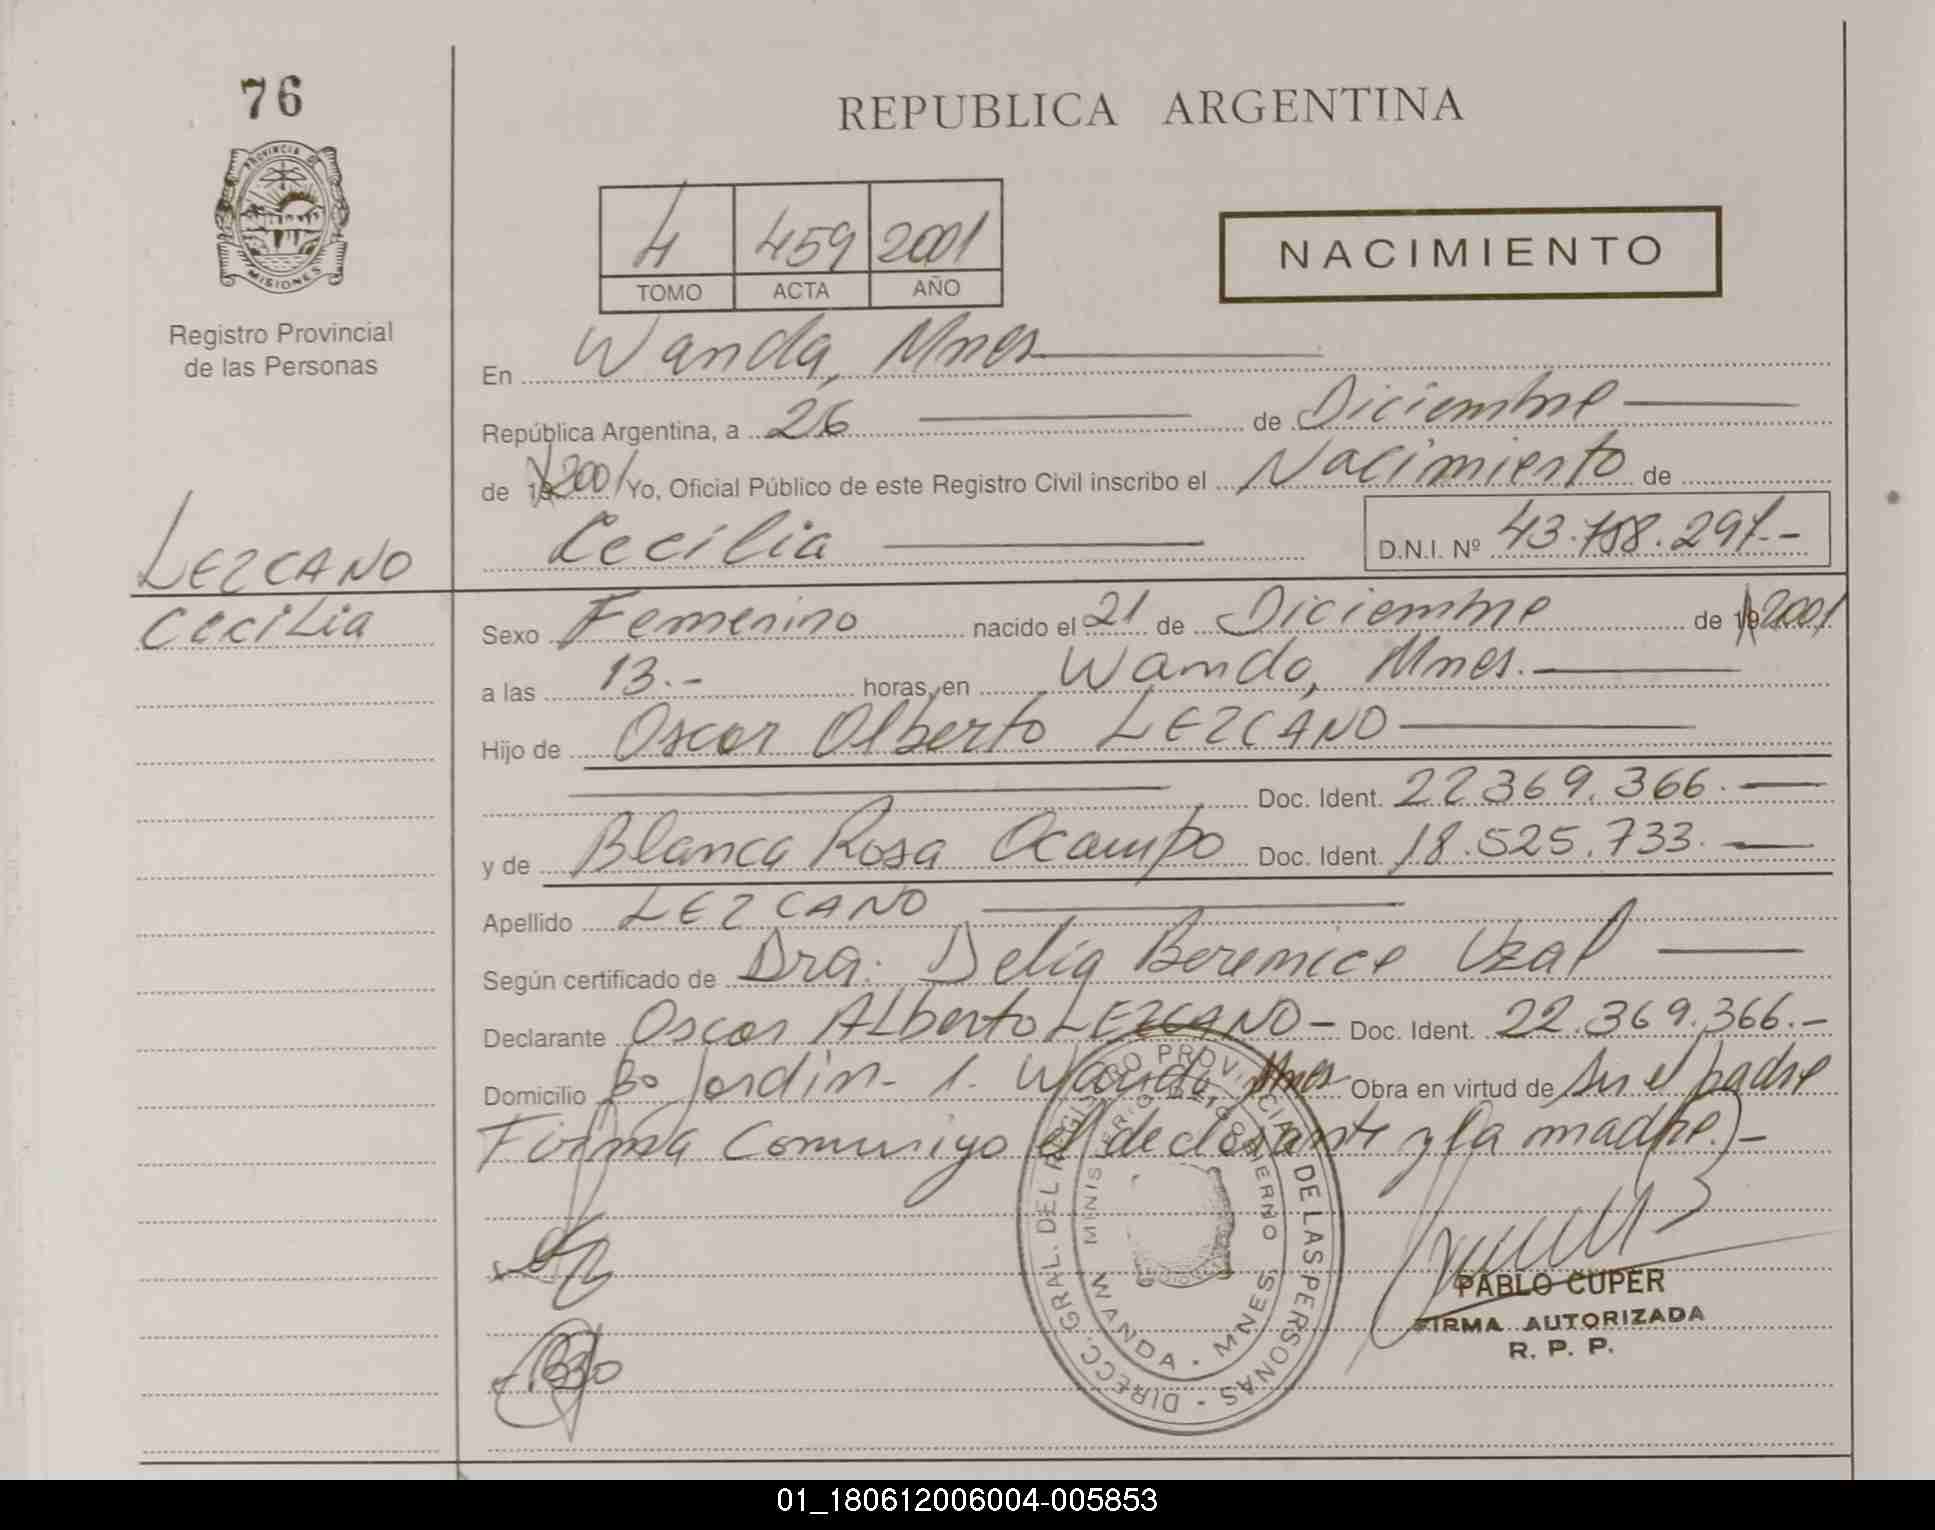 76
REPUBLICA ARGENTINA
PROVINCIA DE
MISIONES
Registro Provincial
de las Personas
4 459 2001
TOMO ACTA AÑO
NACIMIENTO
En Wanda, Mnes
República Argentina, a 26 de Diciembre
de 19 2001 Yo, Oficial Público de este Registro Civil inscribo el Nacimiento de
Cecilia D.N.I. Nº 43.758.297.-
LEZCANO
Cecilia
Sexo Femenino nacido el 21 de Diciembre de 19 2001
a las 13.- horas, en Wanda, Mnes.
Hijo de Oscar Alberto LEZCANO
Doc. Ident. 22.369.366.
y de Blanca Rosa Ocampo Doc. Ident. 18.525.733.
Apellido LEZCANO
Según certificado de Dra. Delia Berenice Uzal
Declarante Oscar Alberto LEZCANO - Doc. Ident. 22.369.366.-
Domicilio Bo Jardin - 1. Wanda Mnes Obra en virtud de Ser el padre
Firma Conmigo el declarante y la madre.) -
DIRECC. GRAL. DEL REGISTRO PROVINCIAL DE LAS PERSONAS -
MINISTERIO DE GOBIERNO
WANDA - MNES
PABLO CUPER
FIRMA AUTORIZADA
R. P. P.
01_180612006004-005853